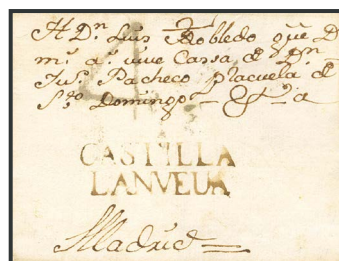 A Dⁿ Luis Robledo que D
mˢ aˢ vive Cassa de Dⁿ
Juⁿ Pacheco Placuela de
Sᵗᵒ Domingo
4
CASTILLA
LANVEUA
Madrid